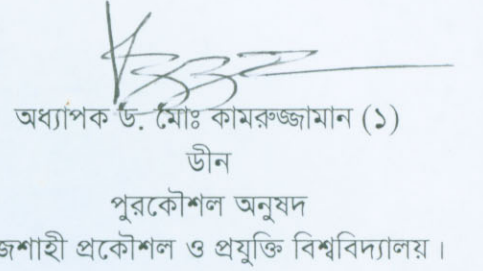 অধ্যাপক ড. মোঃ কামরুজ্জামান (১)
ডীন
পুরকৌশল অনুষদ
জশাহী প্রকৌশল ও প্রযুক্তি বিশ্ববিদ্যালয়।